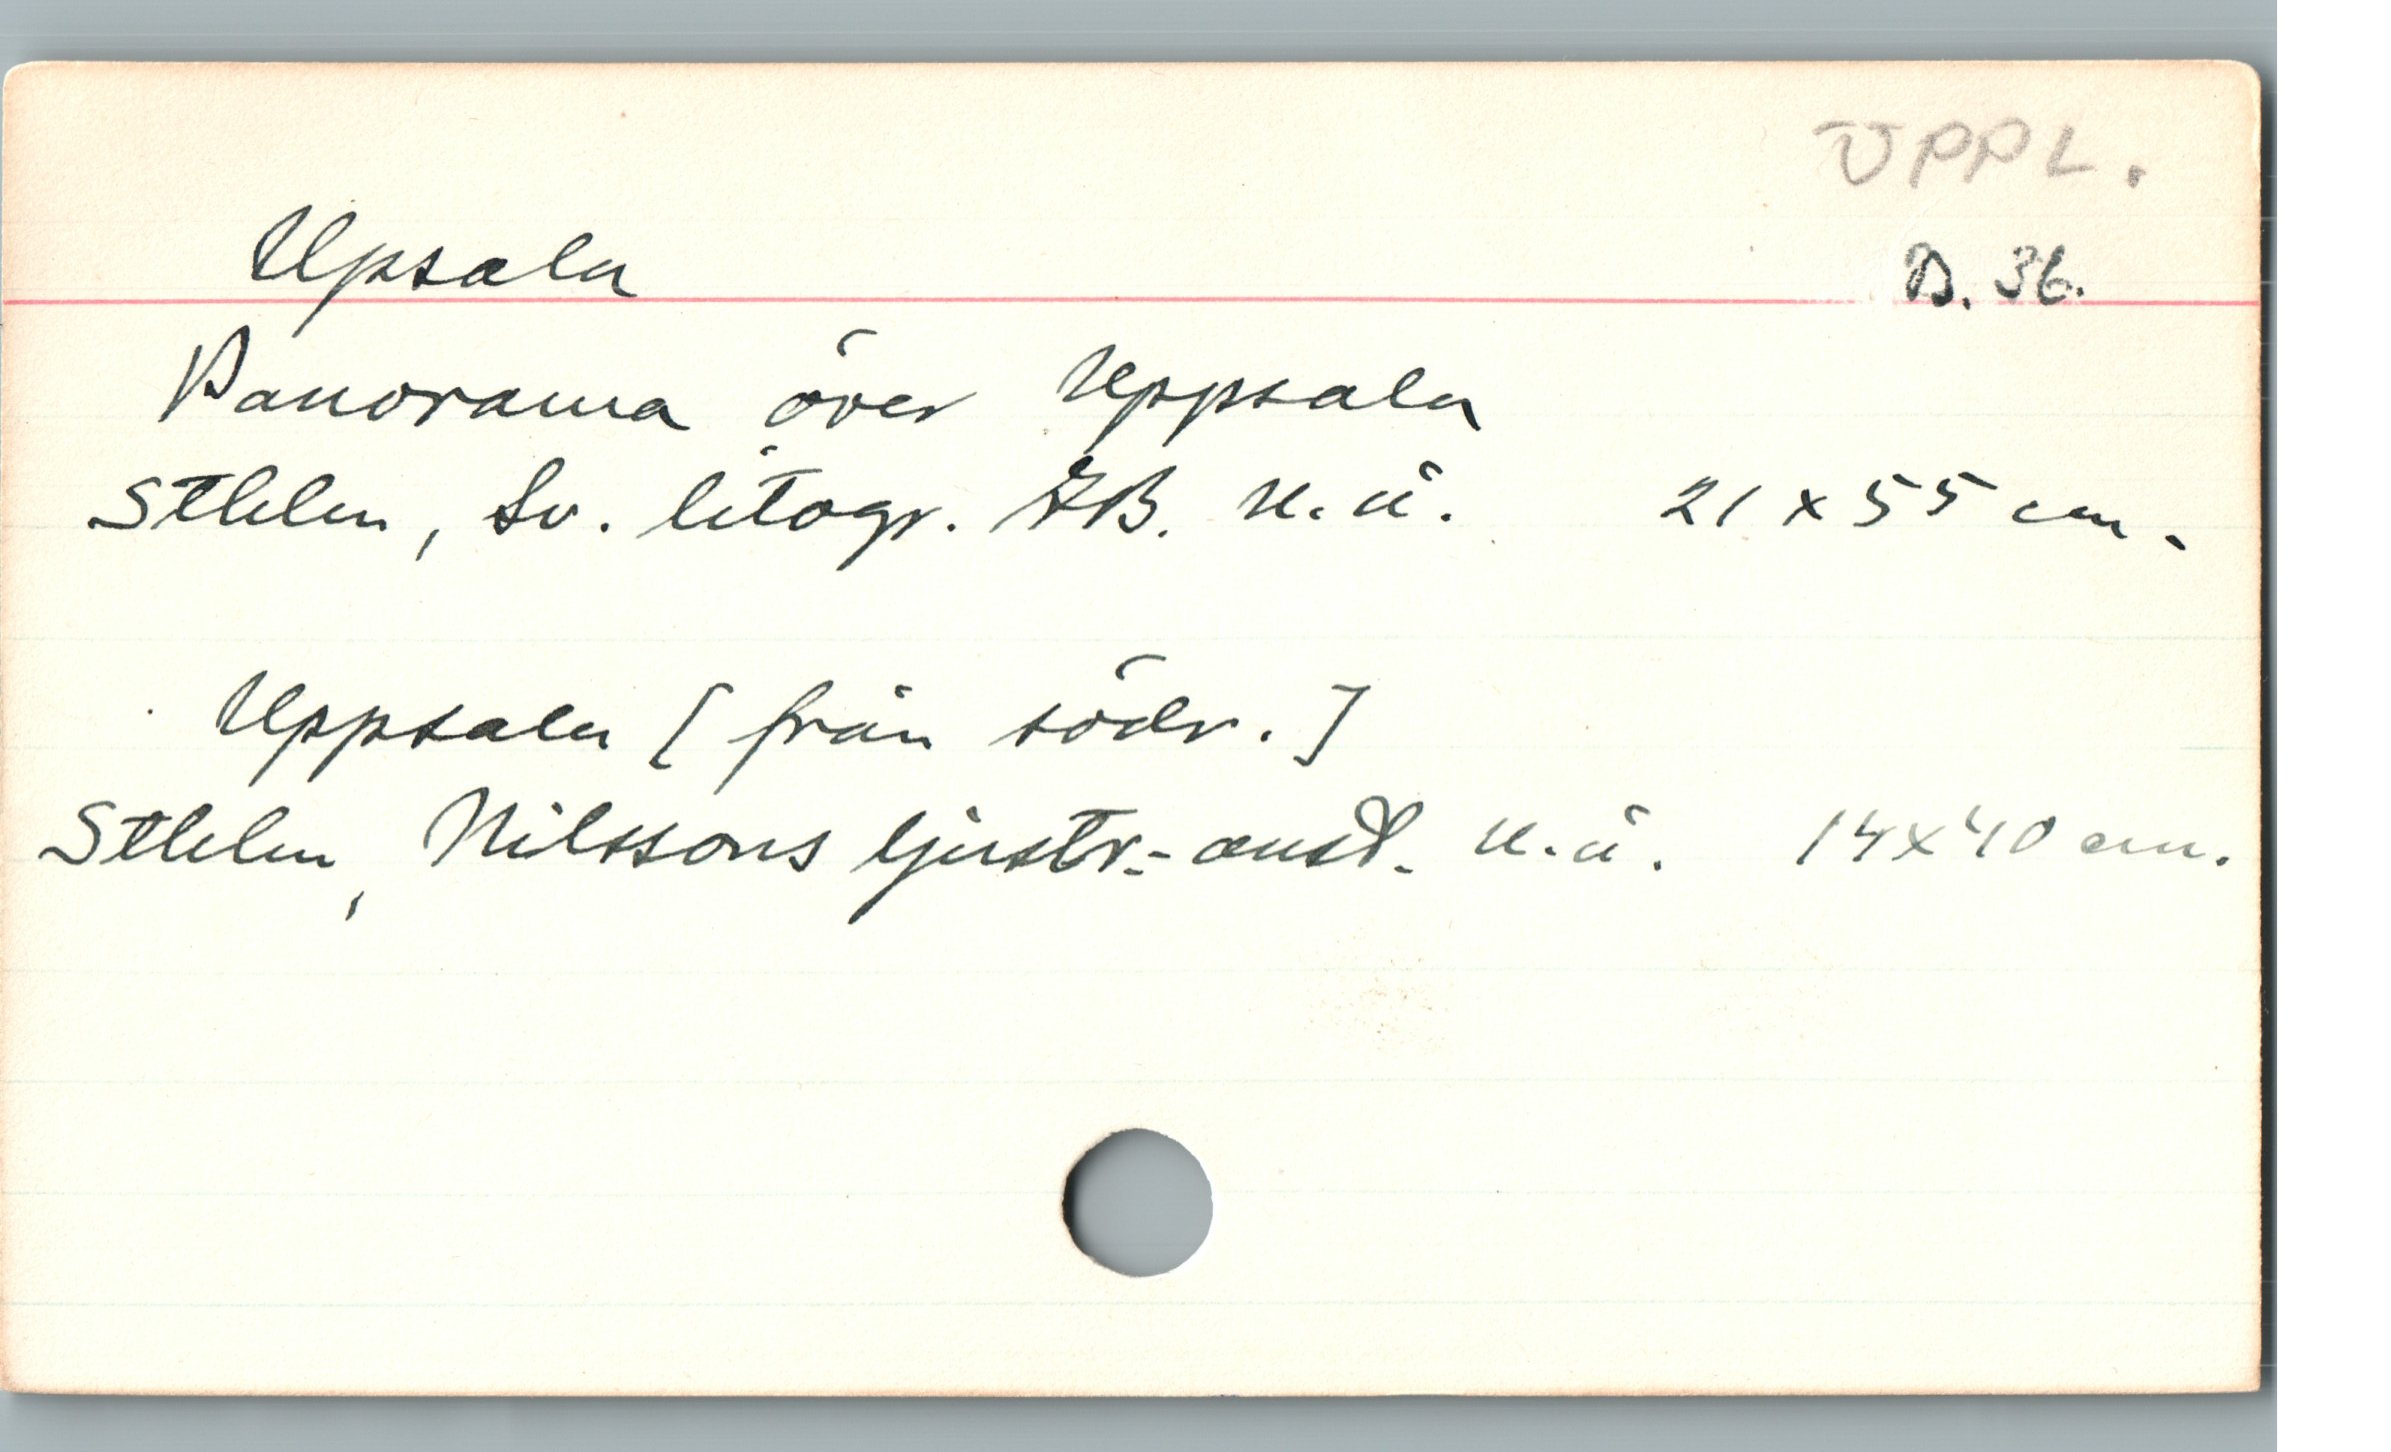 UPPL.
Upsala
B. 36.
Panorama över Uppsala
Sthlm, Sv. litogr. AB. u.å. 21 x 55 cm.
Uppsala [från söder.]
Sthlm, Nilssons ljustr.-anst. u.å. 14x40 cm.